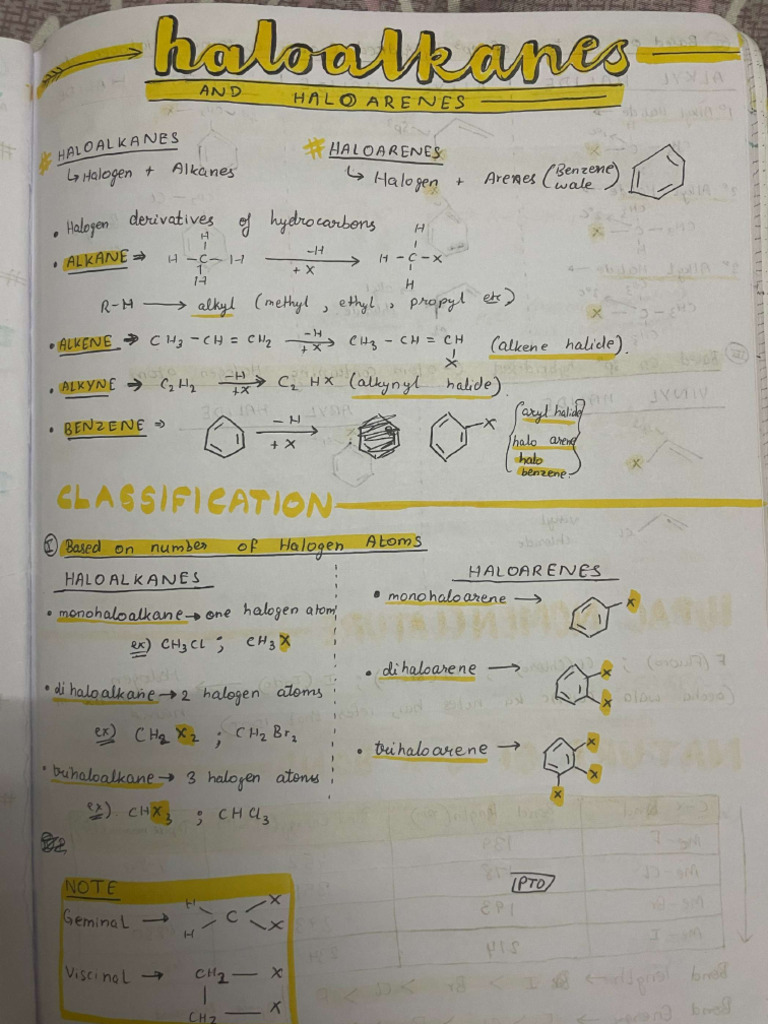 haloalkanes
AND HALOARENES
# HALOALKANES
↳ Halogen + Alkanes
# HALOARENES
↳ Halogen + Arenes (Benzene wale)
• Halogen derivatives of hydrocarbons
• ALKANE ⇒ H - C - H -H → +X H - C - X
H H
H H
R-H → alkyl (methyl, ethyl, propyl etc)
• ALKENE → CH3 - CH = CH2 -H → +X CH3 - CH = CH (alkene halide).
X
• ALKYNE → C2H2 -H → +X C2HX (alkynyl halide).
• BENZENE ⇒ -H → +X X
aryl halide
halo arene
halo
benzene.
CLASSIFICATION
I Based on number of Halogen Atoms
HALOALKANES
• monohaloalkane → one halogen atom
ex) CH3Cl ; CH3X
• dihaloalkane → 2 halogen atoms
ex) CH2X2 ; CH2Br2
• trihaloalkane → 3 halogen atoms
ex). CHX3 ; CHCl3
HALOARENES
• monohaloarene → X
• dihaloarene → X
X
• trihaloarene → X
X
X
NOTE
Geminal → H C X
H X
Viscinal → CH2 — X
CH2 — X
PTO